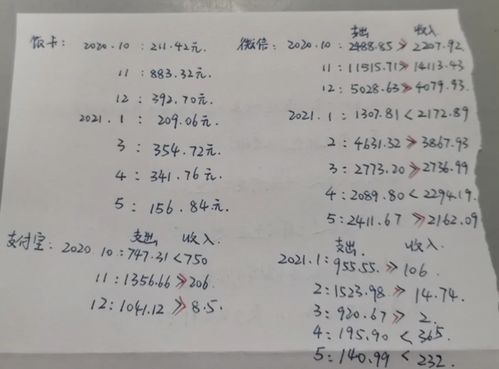 饭卡: 2020.10: 211.42元.
11: 883.32元.
12: 392.70元.
2021.1: 209.06元.
3: 354.72元.
4: 341.76元.
5: 156.84元.
微信: 支出 收入
2020.10: 2488.85 > 2207.92
11: 11515.71 > 14113.43
12: 5028.63 > 4079.93.
2021.1: 1307.81 < 2172.89
2: 4631.32 > 3867.93
3: 2773.20 > 2736.99
4: 2089.80 < 2294.19.
5: 2411.67 > 2162.09
支付宝: 支出 收入
2020 10: 747.31 < 750
11: 1356.66 > 206.
12: 1041.12 > 8.5.
支出 收入.
2021.1: 955.55. > 106
2: 1523.98 > 14.74.
3: 920.67 > 2.
4: 195.90 < 365.
5: 140.99 < 232.